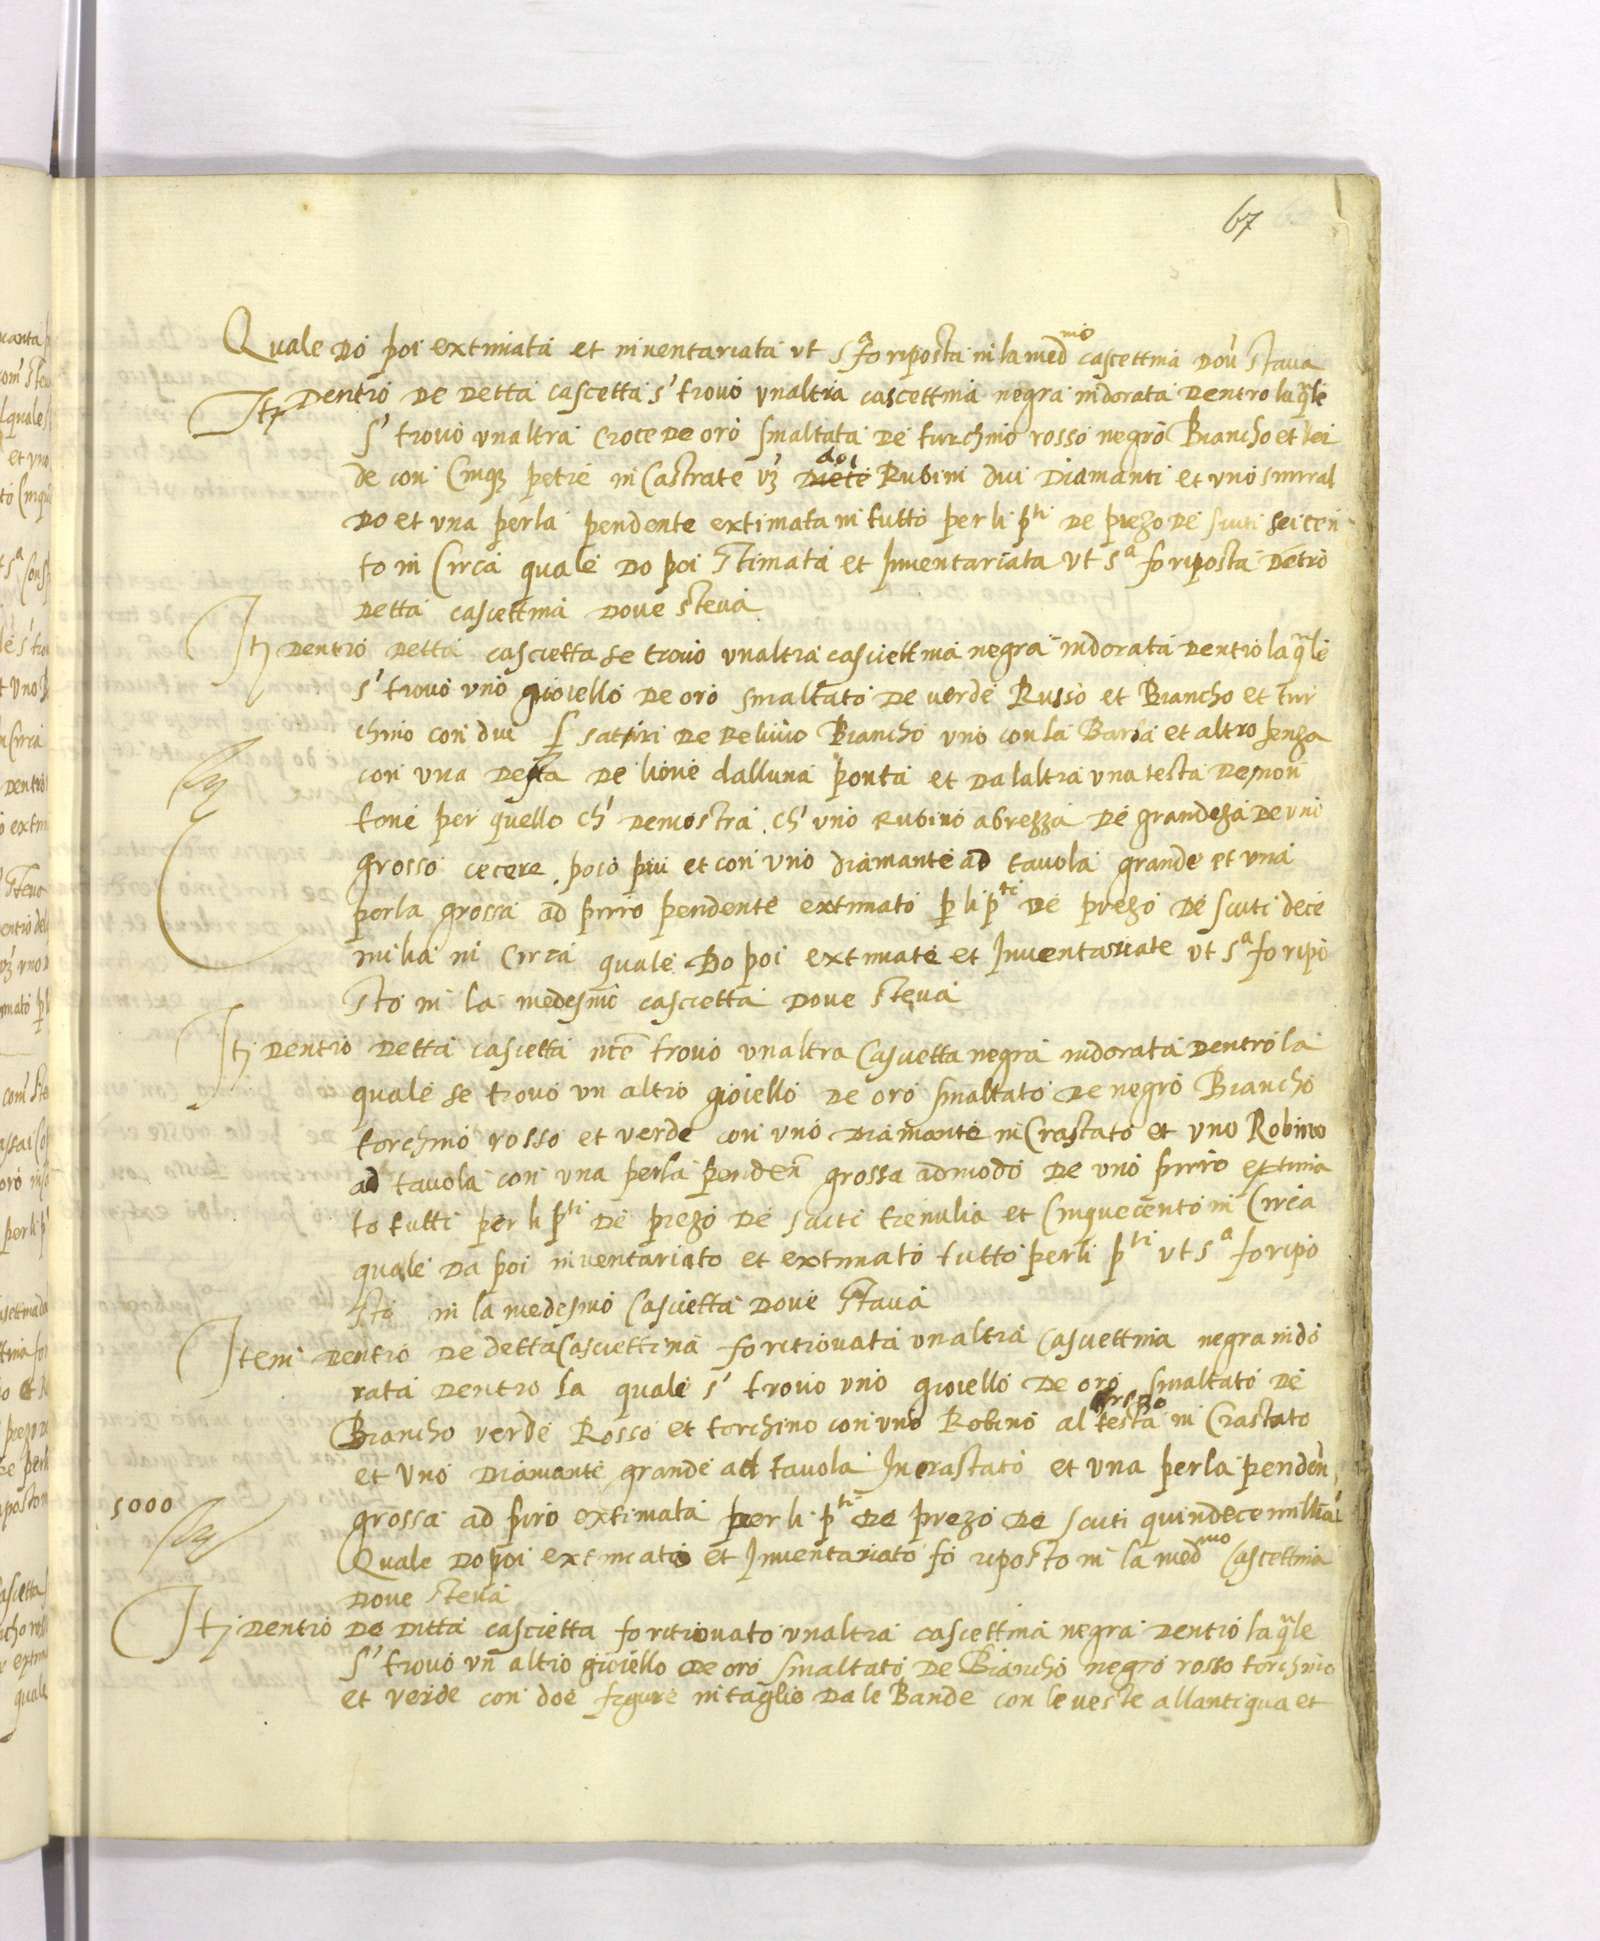 67
Quale Dò poi extimata et inventariata ut sᵃ fo riposta in la medᵐᵒ cascettina Dou' stava
Itȝ Dentro De Detta cascetta s' trovò unaltra cascettina negra indorata Dentro la qle
s' trovò unaltra croce De oro smaltata De turchino rosso negro Biancho et ver
de con Cinqȝ petre in Castrate vȝ doi Rubini dui Diamanti et uno smiral
Do et una perla pendente extimata in tutto per li pᵗⁱ De prezo De scuti seicen
to in Circa quale Do poi stimata et Inventariata Ut sᵃ fo riposta Detro
Detta cascettina Dove steva
Itȝ Dentro Detta cascietta se trovò unaltra casciettina negra indorata Dentro la qle
s' trovò uno gioiello De oro smaltato De verde Russo et Biancho et tur
chino con dui satiri De relivio Biancho uno con la Barba et altro senza
con una Desta De lione dalluna ponta et Da laltra una testa De mon
tone per quello ch' Demostra ch' uno Rubino abrezza De grandeza De uno
grosso cecere poco piu et con uno diamante ad tavola grande et una
perla grossa ad pirro pendente extimato p li pᵗⁱ De prezo De scuti dece
milia in Circa quale Do poi extimate et Inventariate ut sᵃ fo ripo
sto in la medesmo cascietta Dove steva
Itȝ Dentro Detta cascietta trovò unaltra Cascietta negra indorata Dentro la
quale se trovò un altro gioiello De oro smaltato De negro Biancho
torchino rosso et verde con uno Diamante in Crastato et uno Robino
ad tavola con una perla penden grossa ad modo De uno pirro extima
to tutti per li pᵗⁱ De prezo De scuti tremilia et Cinquecento in Circa
quale Da poi inventariato et extimato tutto per li pᵗⁱ ut sᵃ fo ripo
sto in la medesmo Cascietta Dove stava
Item Dentro De detta Casciettina fo ritrovata unaltra Casciettina negra indo
rata Dentro la quale s' trovò uno gioiello De oro smaltato De
Biancho verde Rosso et torchino con uno Robino al testa in Crastato
et Uno Diamante grande ad tavola Incrastato et una perla penden
5000 grossa ad piro extimata per li pᵗⁱ De prezo De scuti quindece millia
Quale Dopoi extimato et Inventariato fo riposto in la medᵐᵒ Cascettina
Dove steva
Itȝ Dentro De Ditta cascietta fo ritrovato unaltra casciettina negra Dentro la qle
s' trovò un altro gioiello De oro smaltato De Biancho negro rosso torchino
et verde con doe figure intaglio Da le Bande con le veste allantiqua et